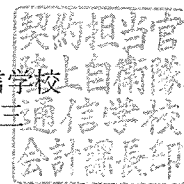 信学校
三
契約担当官
陸上自衛隊
通信学校
会計課長印